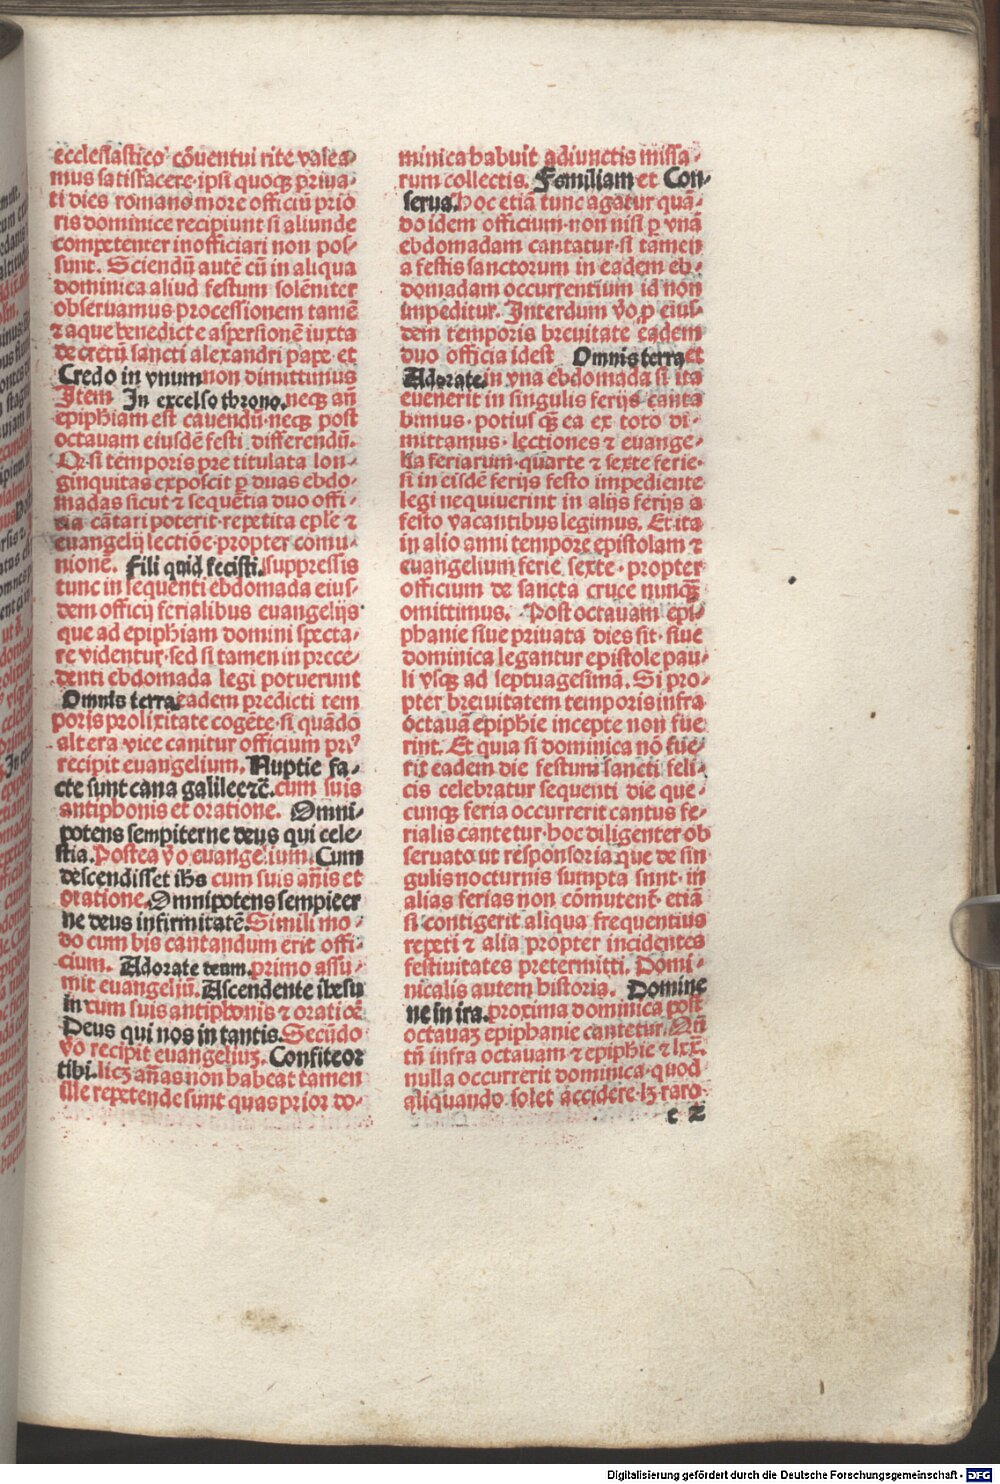 ecclesiastico cōuentui rite valea-
mus satisfacere·ipsi quoqȝ priua-
ti dies romano more officiū prio
ris dominice recipiunt si aliunde
competenter inofficiari non pos-
sunt. Sciendū autē cū in aliqua
dominica aliud festum solēniter
obseruamus processionem tamē
⁊ aque benedicte aspersionē iuxta
decretū sancti alexandri pape· et
Credo in vnum non dimittimus
Item In excelso throno. neqȝ añ
epiphiam est cauendū·neqȝ post
octauam eiusdē festi differendū.
Q̄ si temporis pre titulata lon-
ginquitas exposcit p duas ebdo-
madas sicut ⁊ sequētia duo offi-
cia cātari poterit·repetita eple ⁊
euangelij lectiōe·propter comu-
nionē. Fili quid fecisti. suppressis
tunc in sequenti ebdomada eius-
dem officij ferialibus euangelijs
que ad epiphiam domini specta-
re videntur·sed si tamen in prece-
denti ebdomada legi potuerunt
Omnis terra. eadem predicti tem
poris prolixitate cogēte·si quādo
altera vice canitur officium pri⁹
recipit euangelium. Nuptie fa-
cte sunt cana galilee ⁊c̄. cum suis
antiphonis et oratione. Omni-
potens sempiterne deus qui cele-
stia. Postea v̄o euangelium. Cum
descendisset ihs cum suis añis et
oratione. Omnipotens sempiter
ne deus infirmitatē. Simili mo-
do cum bis cantandum erit offi-
cium. Adorate deum. primo assu-
mit euangeliū. Ascendente ihesu
in cum suis antiphonis ⁊ oratiōe
Deus qui nos in tantis. Secūdo
v̄o recipit euangeliuȝ. Confiteor
tibi. licȝ añas non habeat tamen
ille repetende sunt quas prior do-
minica habuit adiunctis missa-
rum collectis. Familiam et Con-
serua. hoc etiā tunc agatur quā-
do idem officium·non nisi p vnā
ebdomadam cantatur·si tamen
a festis sanctorum in eadem eb-
domadam occurrentium id non
impeditur. Interdum v̄o p eius-
dem temporis breuitate eadem
duo officia idest Omnis terra et
Adorate. in vna ebdomada si ita
euenerit in singulis ferijs canta
bimus· potius qȝ ea ex toto di-
mittamus· lectiones ⁊ euange-
lia feriarum·quarte ⁊ sexte ferie·
si in eisdē ferijs festo impediente
legi nequiuerint in alijs ferijs a
festo vacantibus legimus. Et ita
in alio anni tempore epistolam ⁊
euangelium ferie sexte·propter
officium de sancta cruce nunqȝ
omittimus. Post octauam epi-
phanie siue priuata dies sit·siue
dominica legantur epistole pau-
li vsqȝ ad septuagesimā. Si pro-
pter breuitatem temporis infra
octauā epiphie incepte non fue
rint. Et quia si dominica nō fue-
rit eadem die festum sancti feli-
cis celebratur sequenti die que-
cunqȝ feria occurrerit cantus fe-
rialis cantetur·hoc diligenter ob
seruato ut responsoria que de sin
gulis nocturnis sumpta sunt·in
alias ferias non cōmutent· etiā
si contigerit aliqua frequentius
repeti ⁊ alia propter incidentes
festiuitates pretermitti. Domi-
nicalis autem historia. Domine
ne in ira. proxima dominica post
octauaȝ epiphanie cantetur. Qñ
tñ infra octauam ⁊ epiphie ⁊ lxx.
nulla occurrerit dominica·quod
aliquando solet accidere·lȝ raro
c 2
Digitalisierung gefördert durch die Deutsche Forschungsgemeinschaft - DFG